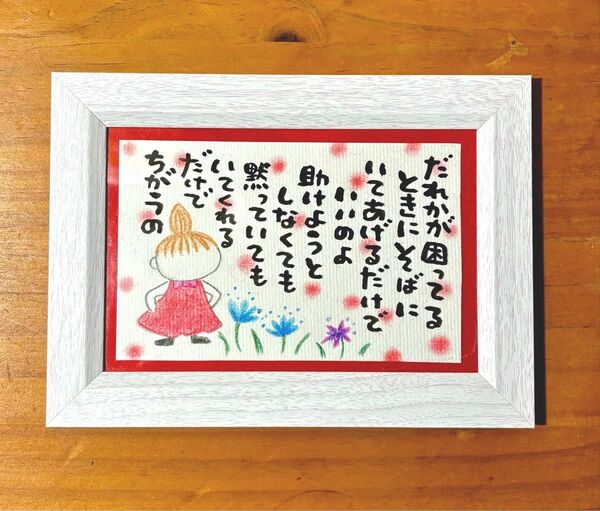 だれかが困ってる
ときにそばに
いてあげるだけで
いいのよ
助けようと
しなくても
黙っていても
いてくれる
だけで
ちがうの